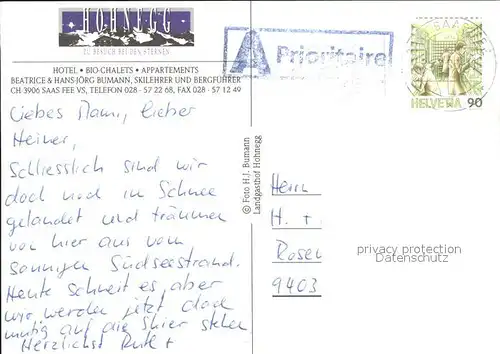 HOHNEGG
ZU BESUCH BEI DEN STERNEN
HOTEL • BIO-CHALETS • APPARTEMENTS
BEATRICE & HANS-JÖRG BUMANN, SKILEHRER UND BERGFÜHRER
CH-3906 SAAS FEE VS, TELEFON 028 - 57 22 68, FAX 028 - 57 12 49
A Prioritaire
SAAS-FEE
HELVETIA 90
Liebes Mami, lieber
Heiner,
Schliesslich sind wir
doch noch im Schnee
gelandet und träumen
von hier aus vom
sonnigen Südseestrand.
Heute schneit es, aber
wir werden jetzt doch
mutig auf die Skier stehen
Herzlichst Ruth +
© Foto H.J. Bumann
Landgasthof Hohnegg
Herrn
H. +
Rosen
9403
privacy protection
Datenschutz